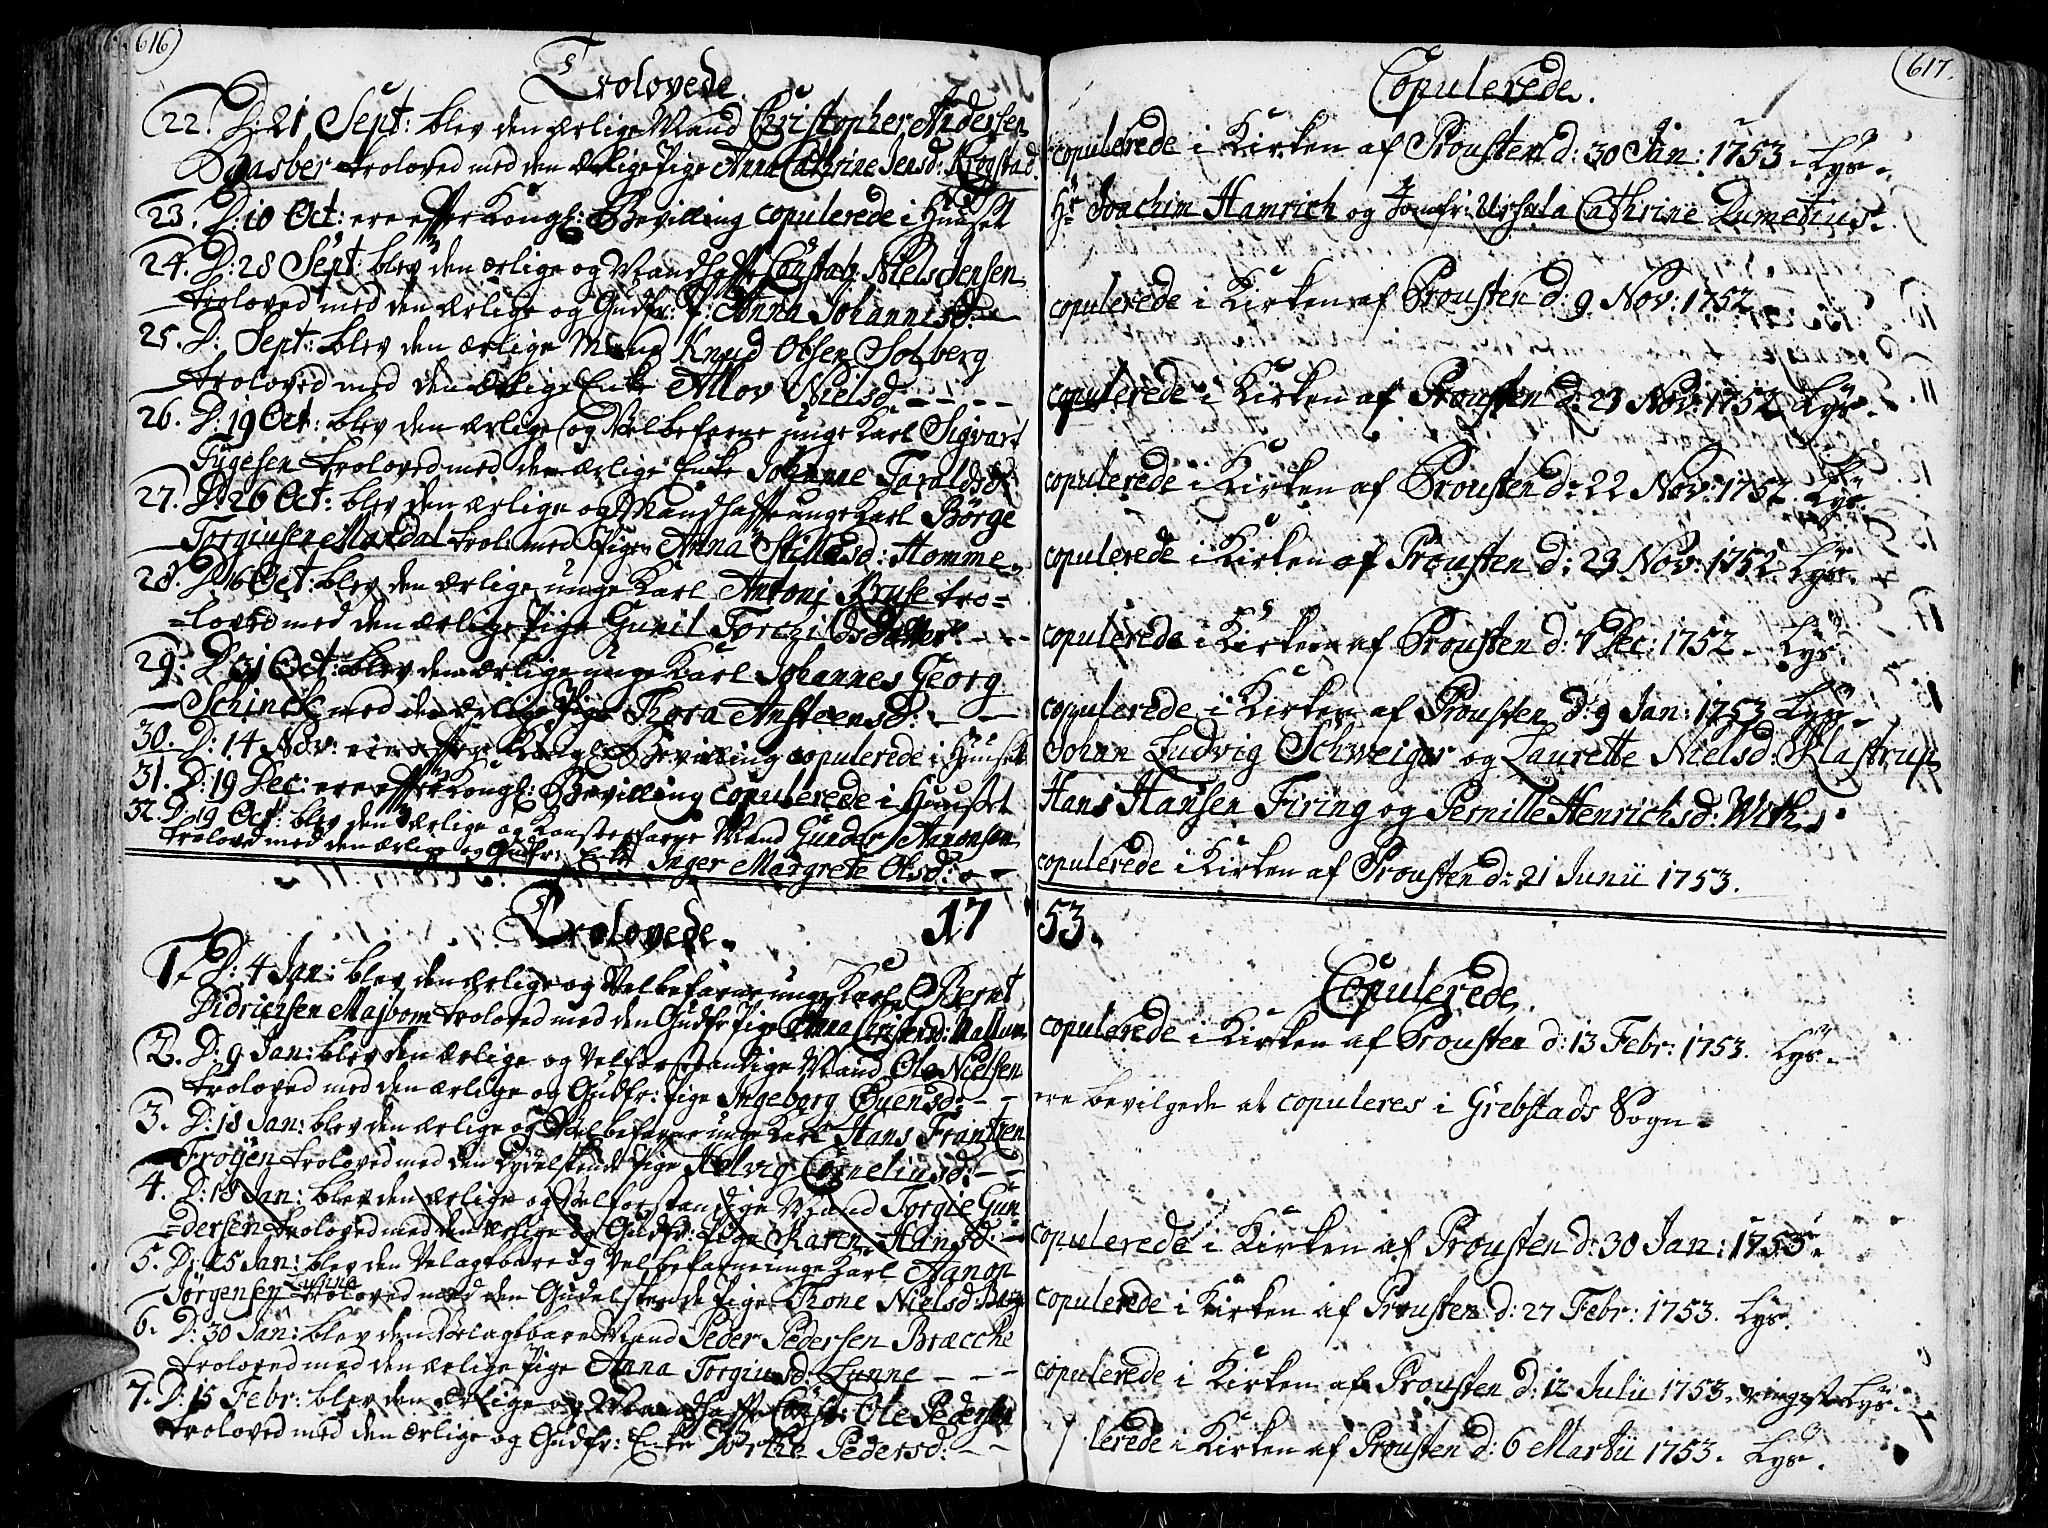 616)
Trolovede.
22. D: 21 Sept: blev den ærlige Mand Christopher Andersen
troloved med den ærlige Pige Anna Cathrine Jensd: Krogstad.
23. D: 10 Oct: ere efter Kongl: Bevilling copulerede i Huuset
24. D: 28 Sept: blev den ærlige og Mandhafte Constabz Niels Jensen
troloved med den ærlige og Gudfr: P: Anna Johannisd:
25. D: Sept: blev den ærlige Mand Knud Olsen Solberg
troloved med den ærlige Enke Allov Nielsd:
26. D: 19 Oct: blev den ærlige og Velbefarne unge Karl Sigvart
Fugesen troloved med den ærlige Enke Johanne Taraldsd:
27. D: 26 Oct: blev den ærlige og Mandhafte unge Karl Börge
Torgiusen Mardal trol: med Pigen Anna Stillesd: Homme.
28. D: 16 Oct: blev den ærlige unge Karl Antoni Kruse tro=
=loved med den ærlige Pige Gunil Torczildsdatter
29. D: 31 Oct: blev den ærlige unge Karl Johannes Georg
Schinck med den ærlige Pige Thora Ansteensd:
30. D: 14 Nov: ere efter Kongl: Bevilling copulerede i Huuset
31. D: 19 Dec: ere efter Kongl: Bevilling copulerede i Huuset
32. D: 19 Oct: blev den ærlige og Konsterfarne Mand Gunder Aanonsen
troloved med den ærlige og Gudfr: Enke Inger Margrete Olsd:
Trolovede. 17
1. D: 4 Jan: blev den ærlige og Velbefarne unge Karl Bernt
Didrichsen Majbom troloved med den Gudfr: Pige Anna Christensd:
2. D: 9 Jan: blev den ærlige og Velforstandige Mand Ole Nielsen
troloved med den ærlige og Gudfr: Pige Ingeborg Ouensd:
3. D: 18 Jan: blev den ærlige og Velbefarne unge Karl Hans Frantzen
Fröyen troloved med den Dydelskende Pige Helvig Corneliusd:
4. D: 18 Jan: blev den ærlige og Velforstandige Mand Torgie Gun=
=dersen troloved med den ærlige og Gudfr: Pige Karen Hansd:
5. D: 25 Jan: blev den Velagtbare og Velbefarne unge Karl Aanon
Jörgensen Lunne troloved med den Gudelskende Pige Thone Nielsd: Berge
6. D: 30 Jan: blev den Velagtbare Mand Peder Pedersen Bræcche
troloved med den ærlige Pige Anna Torgiusd: Lunne
7. D: 15 Febr: blev den ærlige og Mandhafte Const: Ole Pedersen
troloved med den ærlige og Gudfr: Enke Dorthe Pedersd:
617.
Copulerede.
copulerede i Kirken af Prousten d: 30 Jan: 1753. Lys.
Hr Joachim Hamrich og Jomfr: Ursula Cathrine Dumetius.
copulerede i Kirken af Prousten d: 9 Nov: 1752
copulerede i Kirken af Prousten d: 23 Nov: 1752 Lys.
copulerede i Kirken af Prousten d: 22 Nov: 1752. Lys.
copulerede i Kirken af Prousten d: 23 Nov: 1752 Lys.
copulerede i Kirken af Prousten d: 7 Dec: 1752. Lys.
copulerede i Kirken af Prousten d: 9 Jan: 1753 Lys.
Johan Ludvig Schweiger og Laurette Nielsd: Klastrup
Hans Hansen Firing og Pernille Henrichsd: With.
copulerede i Kirken af Prousten d: 21 Junii 1753.
53.
Copulerede.
copulerede i Kirken af Prousten d: 13 Febr: 1753. Lys.
ere bevilgede at copuleres i Grebstads Sogn.
copulerede i Kirken af Prousten d: 30 Jan: 1755.
copulerede i Kirken af Prousten d: 27 Febr: 1753. Lys.
copulerede i Kirken af Prousten d: 12 Julii 1753. Lys.
lerede i Kirken af Prousten d: 6 Martii 1753. Lys.